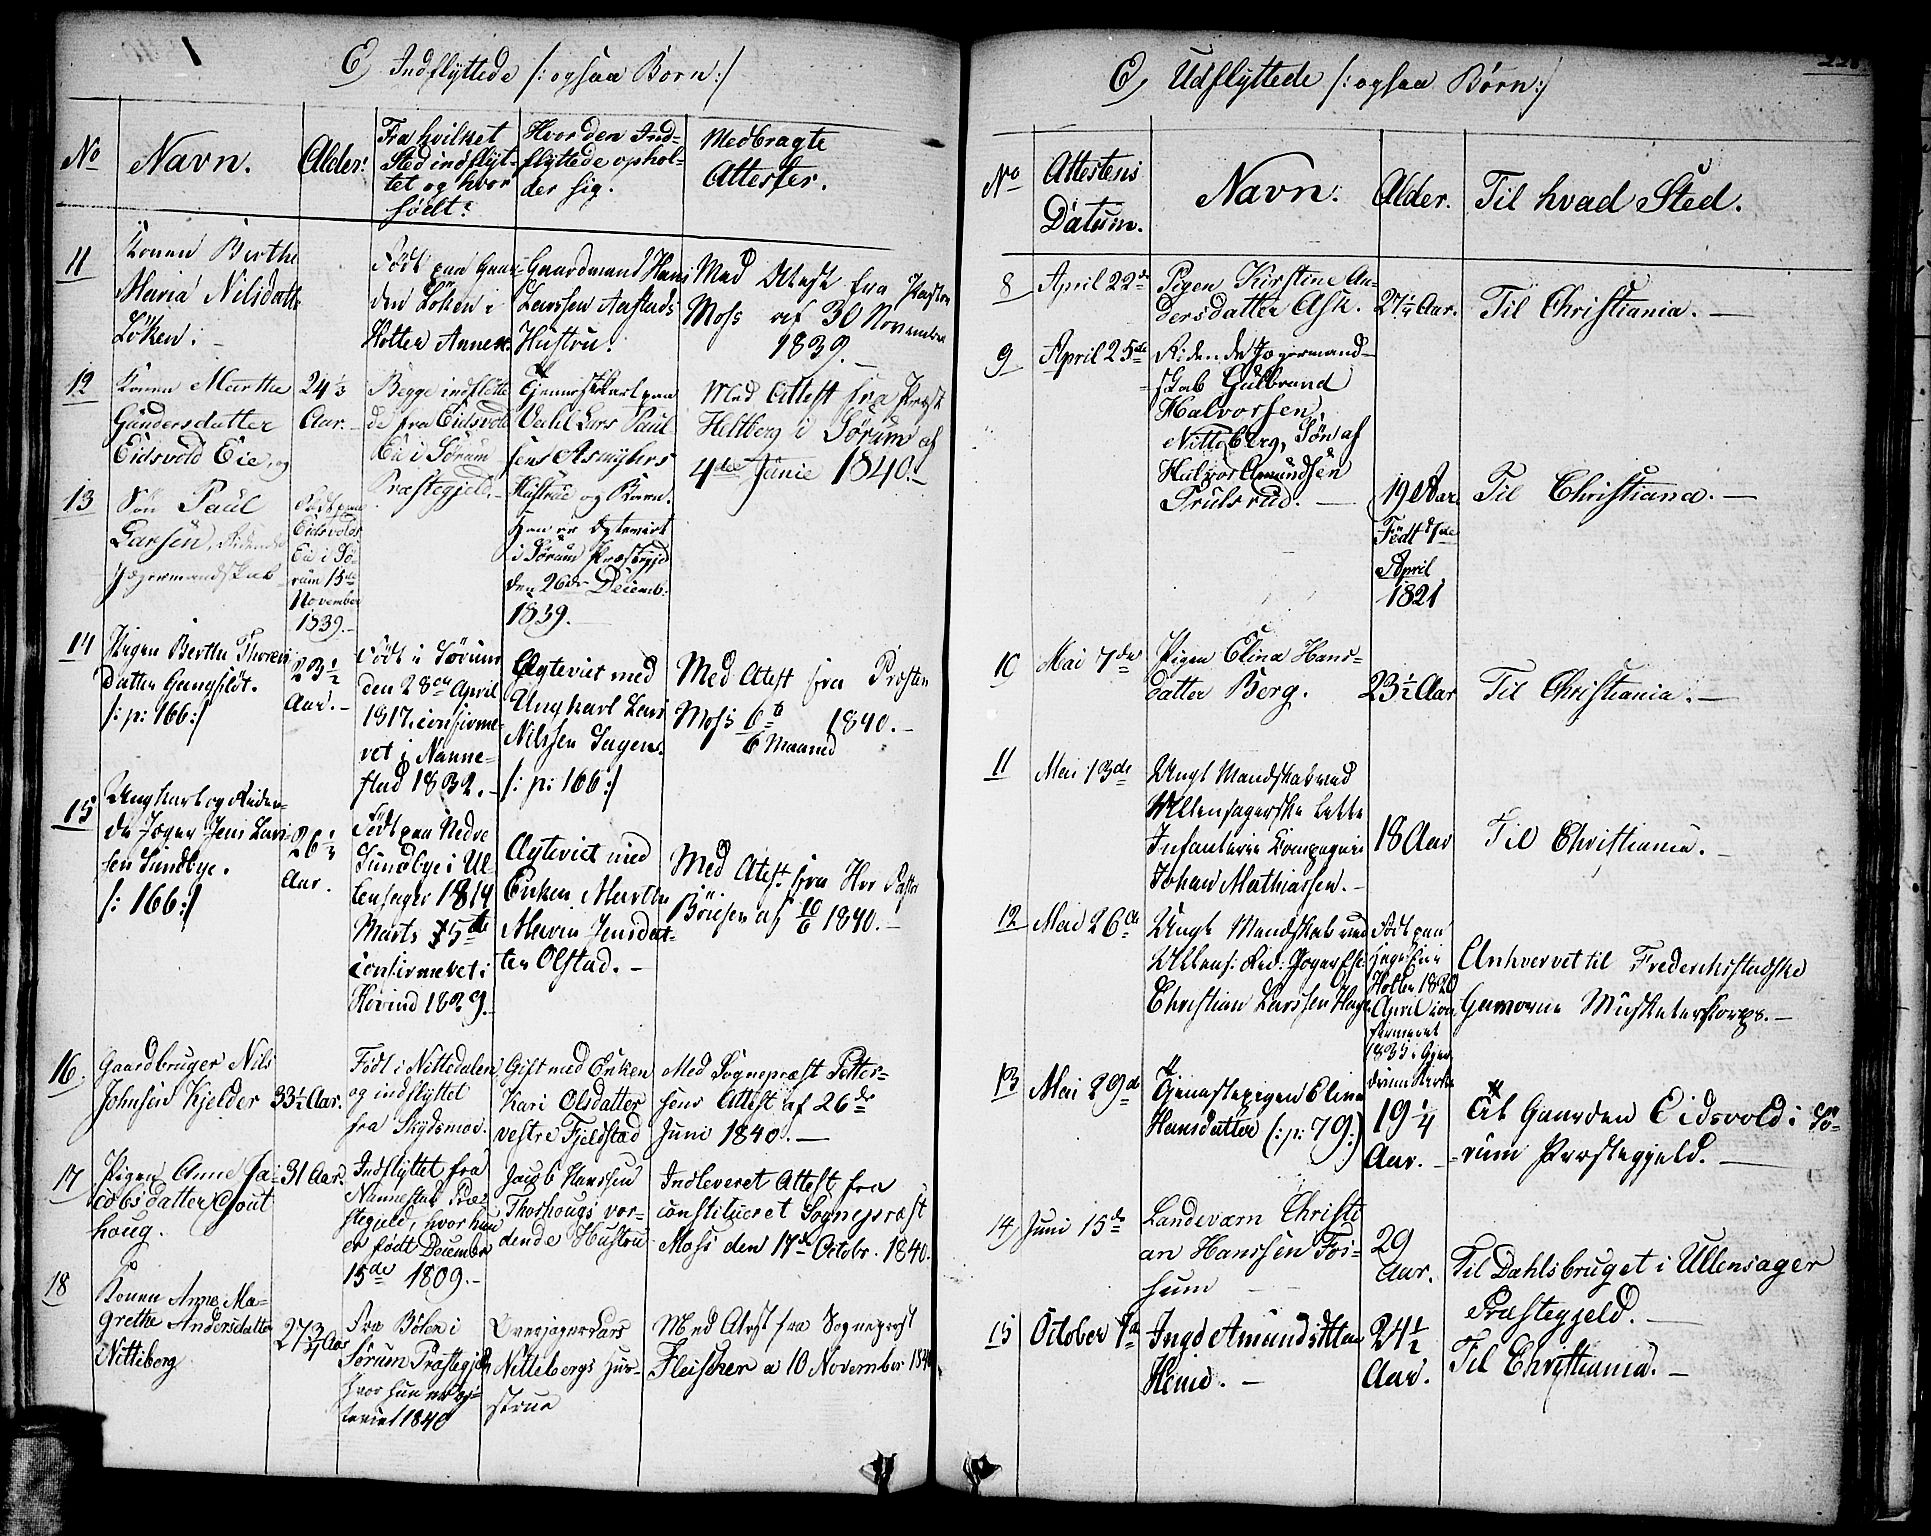 E, Indflyttede /: ogsaa Børn:/
No
Navn.
Alder.
Fra hvilket
Sted indflyt-
tet og hvor
født?
Hvor den Ind-
flyttede ophol-
der sig.
Medbragte
Attester.
11
Konen Berthe
Maria Nilsdatter
Löken.
Födt paa Gaar-
den Löken i
Holter Annex.
Gaardmand Hans
Larssen Aastads
Hustru.
Med Attest fra Pastor
Moss af 30 November
1839.
12
Konen Marthe
Gundersdatter
Eidsvold Eie, og
24 1/3
Aar.
Begge indflytte
de fra Eidsvold
Eie i Sörum
Præstegjeld.
Tjenestekarl paa
Lars Paul
sens
Hustrue og Barn.
Med Attest fra Præst
Heltberg i Sørum af
4de Junie 1840.
13
Sön Paul
Larsen, Ridende
Jægermandskab
Født paa
Eidsvolds
Eie i Sö-
rum 15de
November
1839.
Han er
i Sørum Præstegjeld
den 26de Decemb.
1839.
14
Pigen Berthe Thores
datter
/: p: 166:/
23 1/2
Aar.
Födt i Sörum
den 28en April
1817. confirme-
ret i Nanne-
stad 1832.
Ægteviet med
Ungkarl Lars
Nilssen Hagen.
/: p: 166:/
Med Atest fra Præsten
Moss 6te 1840.
6 Maaned
15
Ungkarl og Riden-
de Jæger Jens Lari-
sen Sundbye.
/: 166:/
26 1/3
Aar.
Födt paa Nedre
Sundbye i Ul-
lensager 1814
Marts 5te
confirmeret i
Hovind 1829.
Ægteviet med
Enken Marthe
Maria Jensdat-
ter Olstad.
Med Atest fra Hr Pastor
af 10/6 1840.
16
Gaardbruger Nils
Johnsen Kjelder
33 1/2 Aar.
Födt i Nittedalen
og indflyttet
fra Skydsmoe.
Gift med Enken
Kari Olsdatter
vestre Fjeldstad
Med Sognepræst Petter-
sens Attest af 26de
Juni 1840.
17
Pigen Anne Ja-
cobsdatter
houg.
31 Aar.
Indflyttet fra
Nannestad Præ-
stegjeld, hvor hun
er født December
15de 1809.
Jacob Hanssen
Thorshougs vor-
dende Hustru
Indleveret Attest fra
constitueret Sognepræst
Moss den 17de Octobr. 1840.
18
Konen Anne Ma-
grethe Andersdatter
Nitteberg
27 3/4 Aar
Fra Bölen i
Sörum Præstegjeld
hvor hun er æg-
teviet 1840
Overjæger Lars
Nittebergs Hu-
strue
Med Atest fra Sognepræst
Fleischer a 10 November 1840
E, Udflyttede /: ogsaa Børn:/
No
Attestens
Datum.
Navn.
Alder.
Til hvad Sted.
8
April 22de
Pigen Kirstine An-
dersdatter Ask.
27 1/4 Aar.
Til Christiania.
9
April 25de
Ridende Jægermand-
skab Gulbrand
Halvorsen,
Nitteberg, Sön af
Halvor Amundsen
Trulsrud.
19 Aar.
Født 7de
April
1821
Til Christiana.
10
Mai 7de
Pigen Elina Hans-
datter Berg.
23 1/2 Aar
Til Christiania.
11
Mai 13de
Ungt Mandskab ved
Ullensagerske lette
Infanterie Compagnie
Johan Mathiassen.
18 Aar
Til Christiania.
12
Mai 26de
Ungt Mandskab ved
Ullens: Rid: Jæger Esc
Christian Larssen Hage
Födt paa
Hage Eie i
Holter 1820
April con
firmeret
1835 i Gjer
drum Kirke
Anhvervet til Frederikstadske
Garnorne Musketeerkorps.
13
Mai 29de
Tjenestepigen Elina
Hansdatter (:p: 79:)
19 1/4
Aar.
At Gaarden Eidsvold i Sö-
rum Præstegjeld.
14
Juni 15de
Landeværn Christi
an Hanssen Fos-
hum
29
Aar.
Til Dahlsbruget i Ullensager
Præstegjeld.
15
October 7de
Inge Amundsdatter
24 1/2
Aar.
Til Christiania.